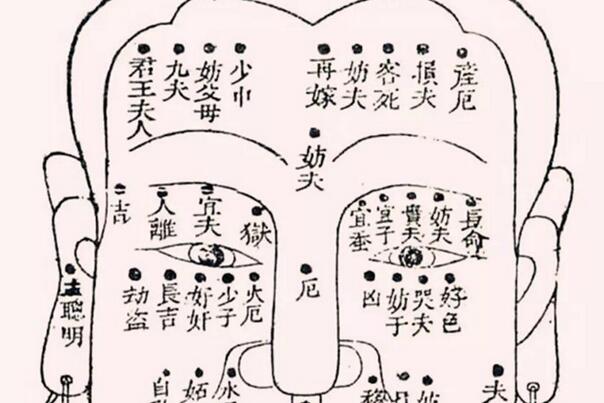 産厄
損夫
客死
妨夫
再嫁
少巾
妨父母
九夫
君王夫人
妨夫
長命
妨夫
貴夫
宜子
宜蚕
獄
宜夫
人離
吉
好色
哭夫
妨子
凶
厄
火厄
少子
奸
長吉
劫盜
聰明
夫
水
妬
自